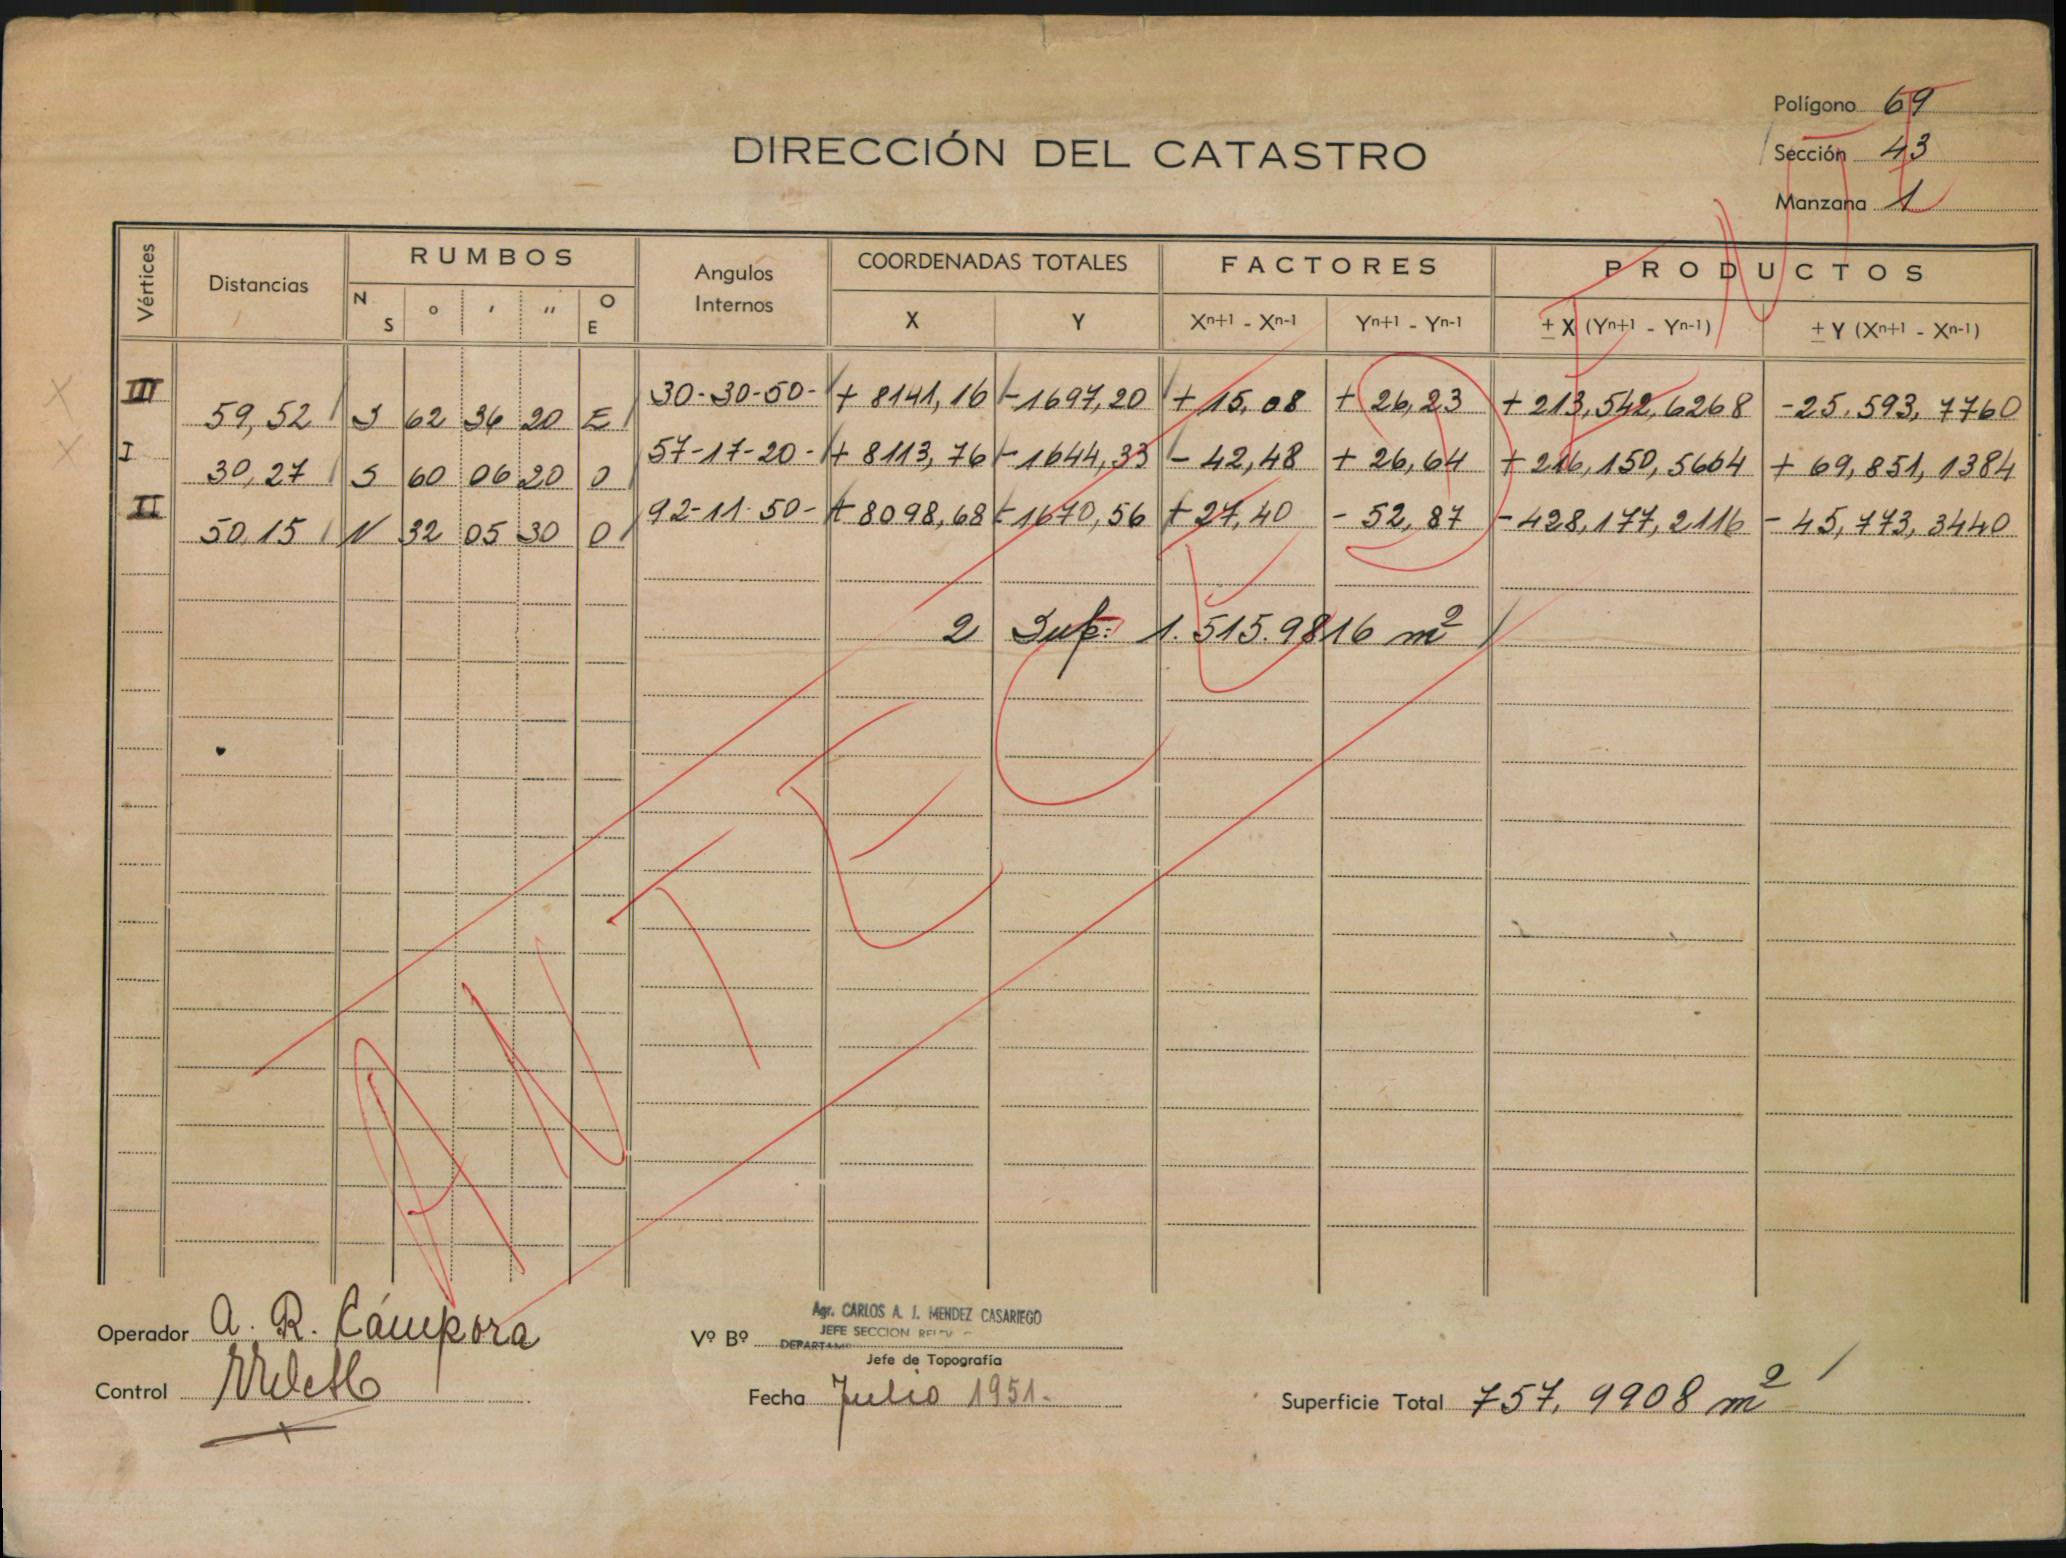 Polígono 69
DIRECCIÓN DEL CATASTRO
Sección 43
Manzana 1
Vértices
Distancias
RUMBOS
N S
o
'
"
O E
Angulos Internos
COORDENADAS TOTALES
X
Y
FACTORES
Xn+1 - Xn-1
Yn+1 - Yn-1
PRODUCTOS
± X (Yn+1 - Yn-1)
± Y (Xn+1 - Xn-1)
III 30-30-50- + 8141,16 -1697,20 + 15,08 + 26,23 + 213,542,6268 -25.593,7760
59,52 S 62 36 20 E
I 57-17-20- + 8113,76 -1644,33 - 42,48 + 26,64 + 216,150,5664 + 69,851,1384
30,27 S 60 06 20 O
II 92-11-50- + 8098,68 -1670,56 + 27,40 - 52,87 - 428,177,2116 - 45,773,3440
50,15 N 32 05 30 O
2 Sup: 1.515.9816 m²
ANTECEDENTE
Operador A. R. Cámpora
Agr. CARLOS A. J. MENDEZ CASARIEGO
JEFE SECCION
Vº Bº
Jefe de Topografía
Control
Fecha Julio 1951.-
Superficie Total 757,9908 m²